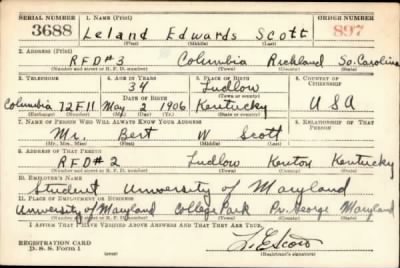 SERIAL NUMBER 1. NAME (Print) ORDER NUMBER
3688 Leland Edwards Scott 897
(First) (Middle) (Last)
2. ADDRESS (Print)
RFD#3 Columbia Richland So. Carolina
(Number and street or R. F. D. number) (Town) (County) (State)
3. TELEPHONE 4. AGE IN YEARS 5. PLACE OF BIRTH 6. COUNTRY OF CITIZENSHIP
34 Ludlow
DATE OF BIRTH (Town or county)
Columbia 72F11 May 2 1906 Kentucky USA
(Exchange) (Number) (Mo.) (Day) (Yr.) (State or country)
7. NAME OF PERSON WHO WILL ALWAYS KNOW YOUR ADDRESS 8. RELATIONSHIP OF THAT PERSON
Mr. Bert W Scott
(Mr., Mrs., Miss) (First) (Middle) (Last)
9. ADDRESS OF THAT PERSON
RFD#2 Ludlow Kenton Kentucky
(Number and street or R. F. D. number) (Town) (County) (State)
10. EMPLOYER'S NAME
Student University of Maryland
11. PLACE OF EMPLOYMENT OR BUSINESS
University of Maryland College Park Pr. George Maryland
(Number and street or R. F. D. number) (Town) (County) (State)
I AFFIRM THAT I HAVE VERIFIED ABOVE ANSWERS AND THAT THEY ARE TRUE.
REGISTRATION CARD
D. S. S. Form 1 L. E. Scott
(Registrant's signature)